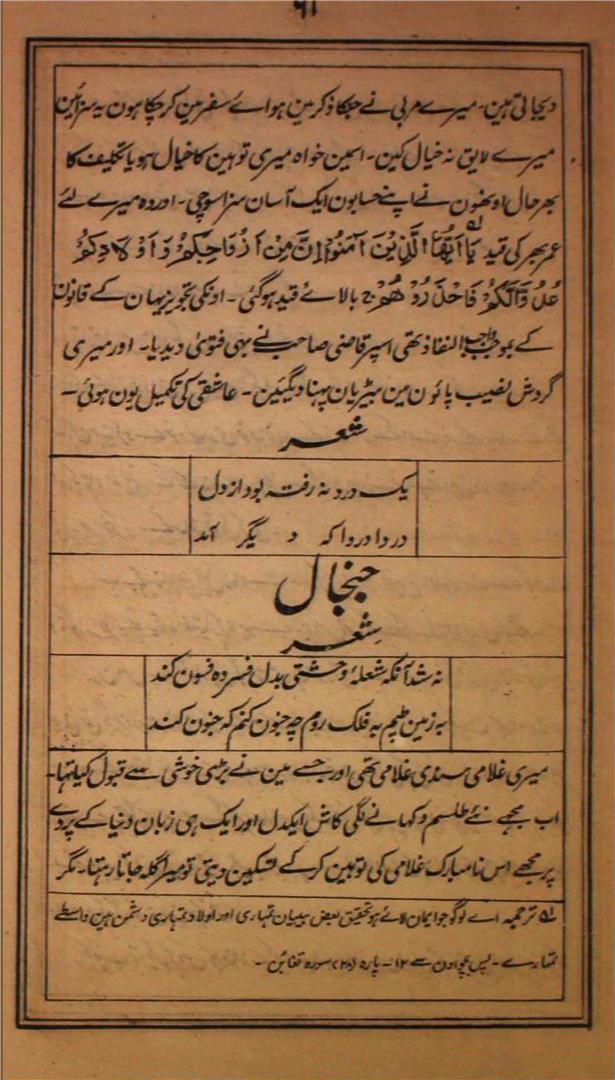 ۶۱
دیجاتی ہین۔ میرے مربی نے جنکا ذکر مین ہواے سفر مین کر چکا ہون یہ سزائین
میرے لایق نہ خیال کین۔ اسمین خواہ میری توہین کا خیال ہو یا تکلیف کا
بہرحال اونھون نے اپنے حسابون ایک آسان سزا سوچی۔ اور وہ میرے لئے
عمر بھر کی قید یَا اَیُّھَا الَّذِیْنَ آمَنُوْا اِنَّ مِنْ اَزْوَاجِکُمْ وَ اَوْلَادِکُمْ
عَدُوًّالَّکُمْ فَاحْذَرُوْھُمْ ج بالاے قید ہوگئی۔ اونکی تجویز یہان کے قانون
کے بموجب واجب النفاذ تھی اسپر قاضی صاحب نے بھی فتویٰ دیدیا۔ اور میری
گردش نصیب پائون مین بیڑیان پہنا دیگئین۔ عاشقی کی تکمیل یون ہوئی۔
شعر
یک درد نہ رفتہ بود از دل
درد ادرو اکہ دیگر آمد
جنجال
شعر
نہ شد آنکہ شعلۂ وحشتی بدل فسردہ فسون کند
بہ زمین طپم بہ فلک روم چہ جنون کنم کہ جنون کند
میری غلامی سندی غلامی تھی اور جسے مین نے بڑی خوشی سے قبول کیا تھا۔
اب مجھے نئے طلسم دکھانے لگی کاش ایکدل اور ایک ہی زبان دنیا کے پردے
پر مجھے اس نامبارک غلامی کی توہین کرکے تسکین دیتی تو میرا گلہ جاتا رہتا۔ مگر
لہ ترجمہ اے لوگو جو ایمان لائے ہو تحقیق بعض بیبیان تمہاری اور اولاد تمہاری دشمن ہین واسطے
تمہارے۔ پس بچو اون سے ۱۲۔ پارہ (۲۸) سورہ تغابن۔